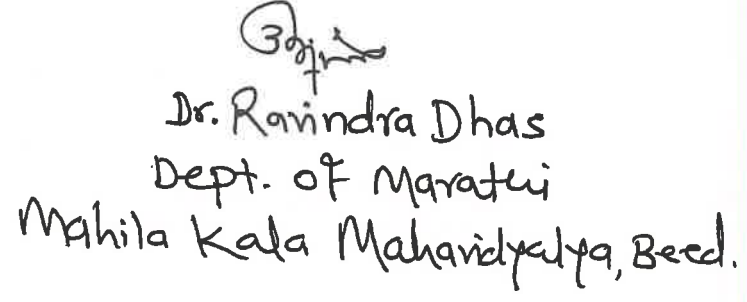 Dr. Ravindra Dhas
Dept. of Marathi
Mahila Kala Mahavidyalya, Beed.